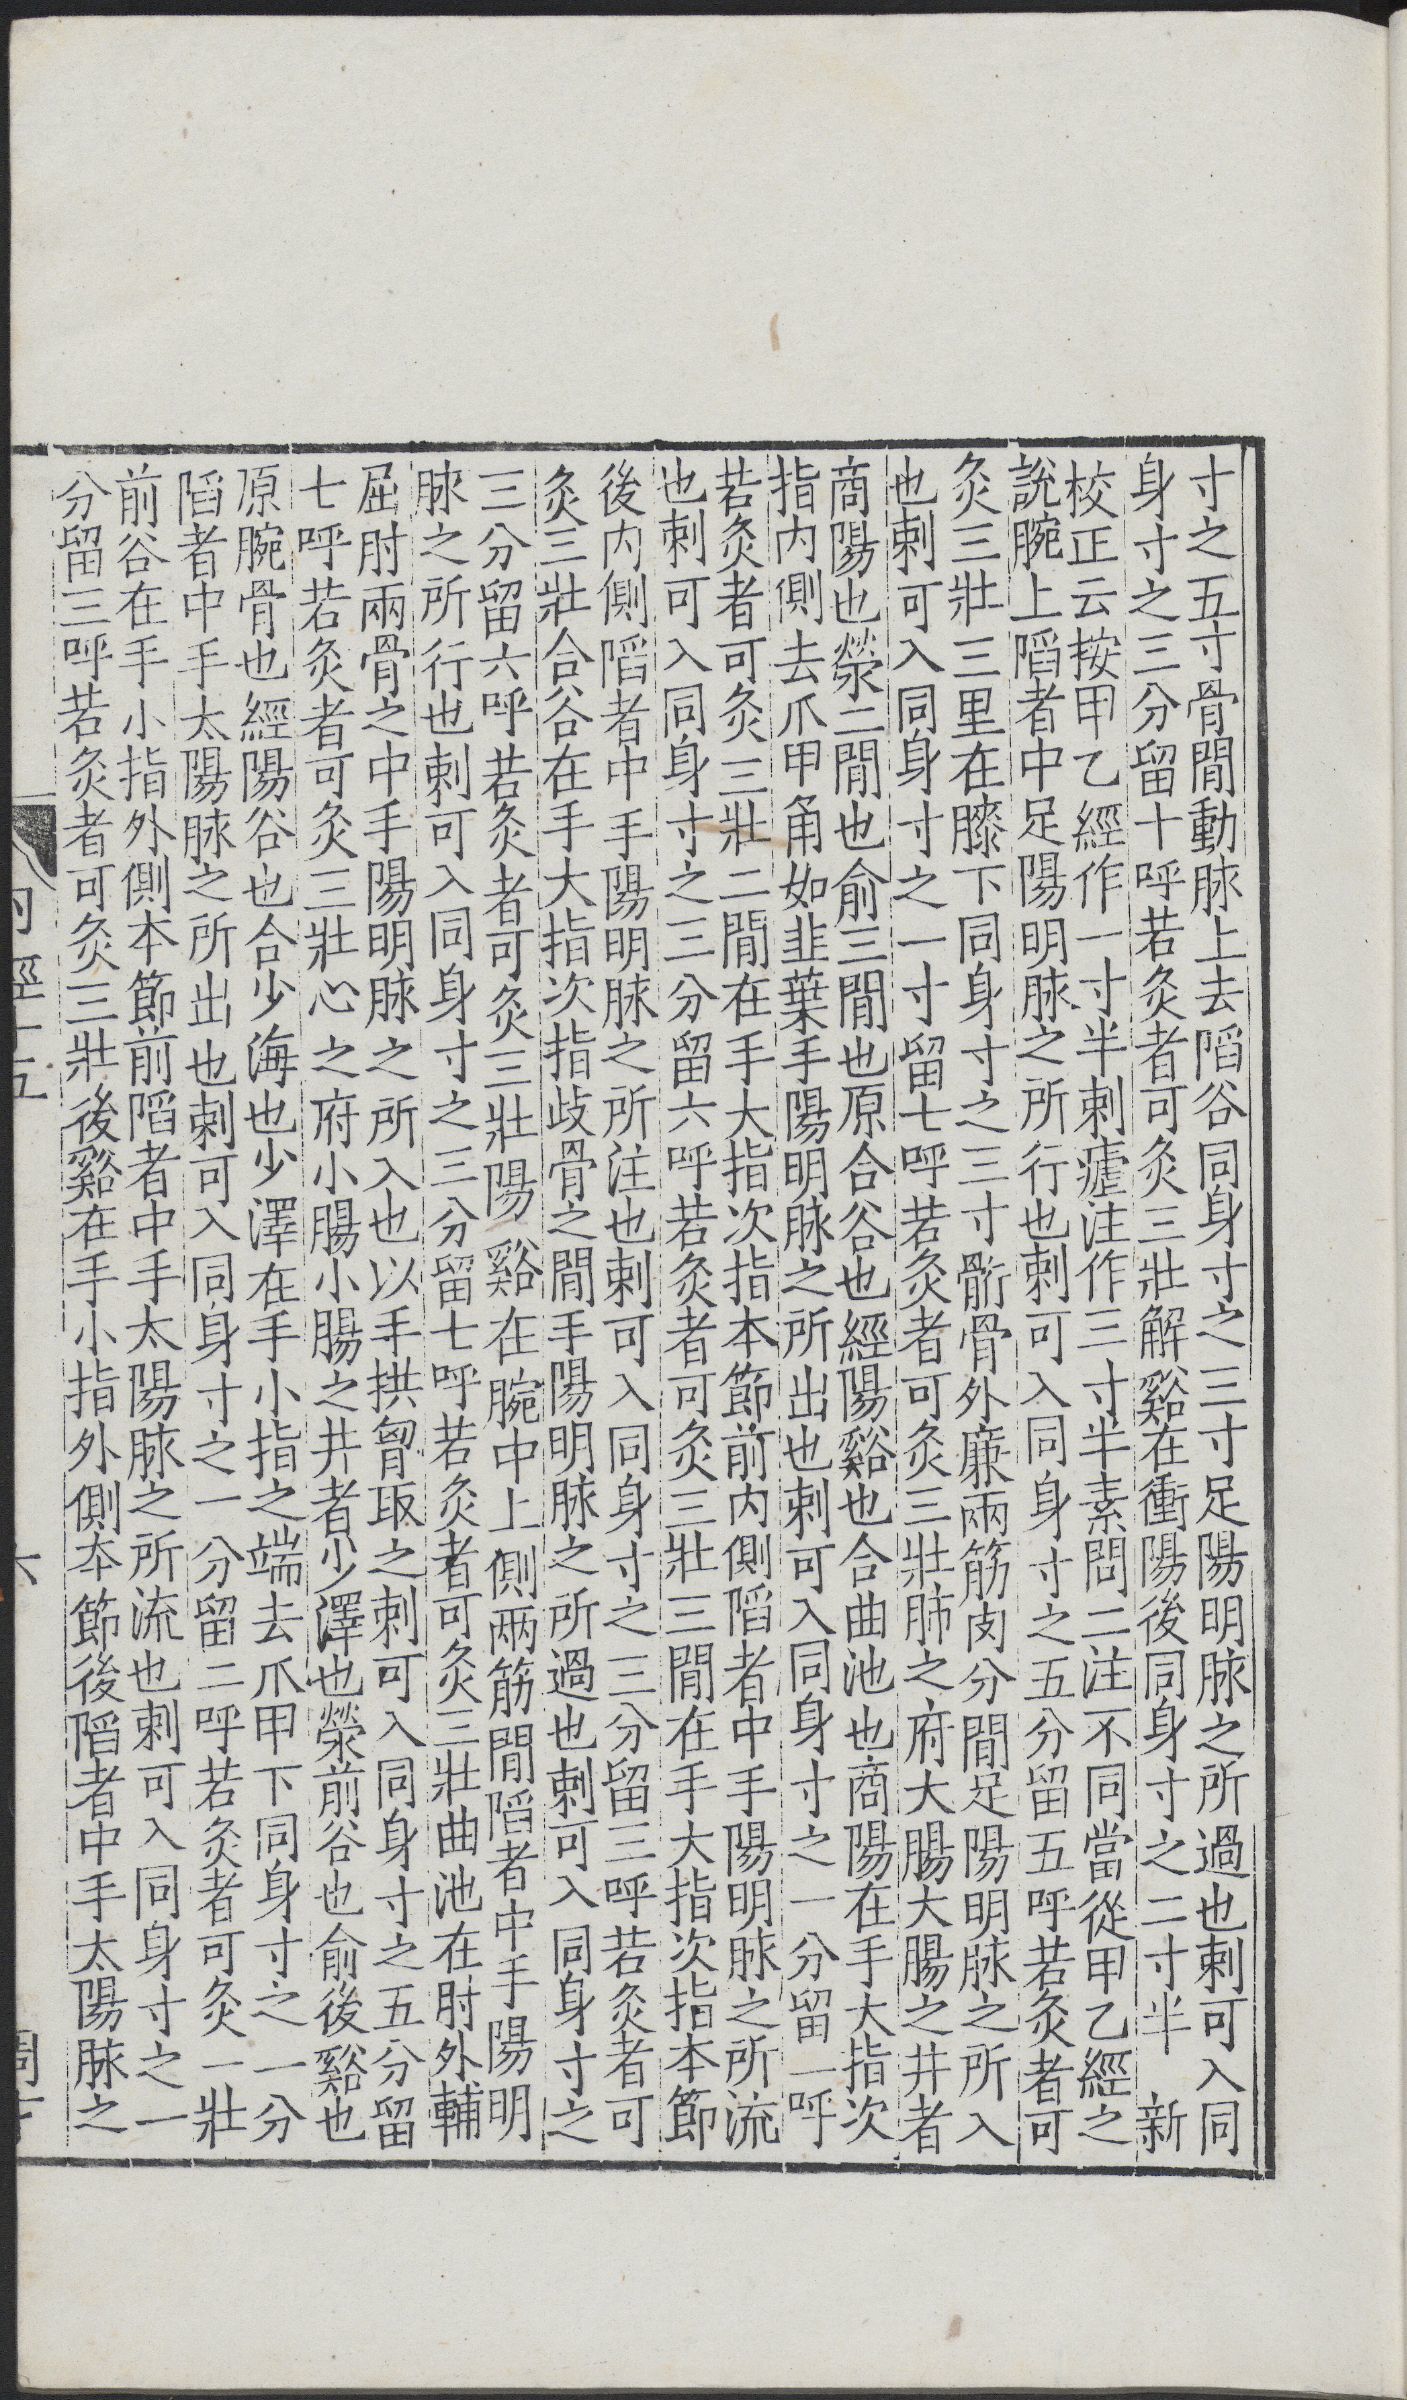 寸之五寸骨間動脉上去陷谷同身寸之三寸足陽明脉之所過也刺可入同
身寸之三分留十呼若灸者可灸三壯解谿在衝陽後同身寸之二寸半 新
校正云按甲乙經作一寸半刺瘧注作三寸半素問二注不同當從甲乙經之
說腕上陷者中足陽明脉之所行也刺可入同身寸之五分留五呼若灸者可
灸三壯三里在膝下同身寸之三寸䯒骨外廉兩筋肉分間足陽明脉之所入
也刺可入同身寸之一寸留七呼若灸者可灸三壯肺之府大腸大腸之井者
商陽也滎二間也俞三間也原合谷也經陽谿也合曲池也商陽在手大指次
指内側去爪甲角如韭葉手陽明脉之所出也刺可入同身寸之一分留一呼
若灸者可灸三壯二間在手大指次指本節前内側陷者中手陽明脉之所流
也刺可入同身寸之三分留六呼若灸者可灸三壯三間在手大指次指本節
後内側陷者中手陽明脉之所注也刺可入同身寸之三分留三呼若灸者可
灸三壯合谷在手大指次指歧骨之間手陽明脉之所過也刺可入同身寸之
三分留六呼若灸者可灸三壯陽谿在腕中上側兩筋間陷者中手陽明
脉之所行也刺可入同身寸之三分留七呼若灸者可灸三壯曲池在肘外輔
屈肘兩骨之中手陽明脉之所入也以手拱胷取之刺可入同身寸之五分留
七呼若灸者可灸三壯心之府小腸小腸之井者少澤也滎前谷也俞後谿也
原腕骨也經陽谷也合少海也少澤在手小指之端去爪甲下同身寸之一分
陷者中手太陽脉之所出也刺可入同身寸之一分留二呼若灸者可灸一壯
前谷在手小指外側本節前陷者中手太陽脉之所流也刺可入同身寸之一
分留三呼若灸者可灸三壯後谿在手小指外側本節後陷者中手太陽脉之
内經十五
六